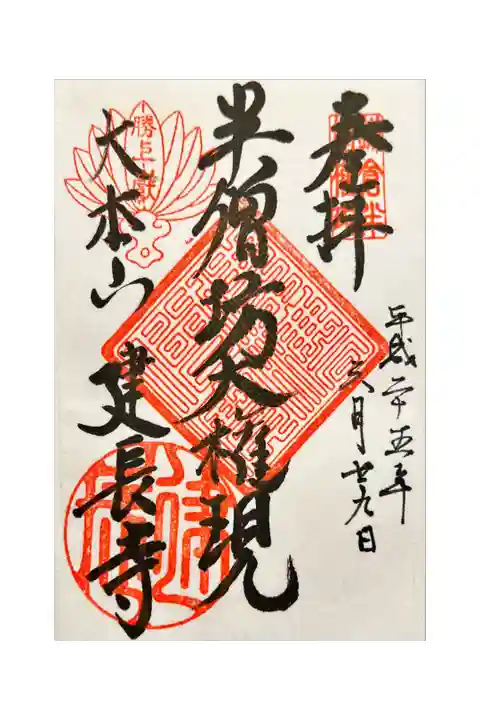 奉拝
平成二十五年
六月廿九日
半僧坊大権現
大本山 建長寺
勝上嶽